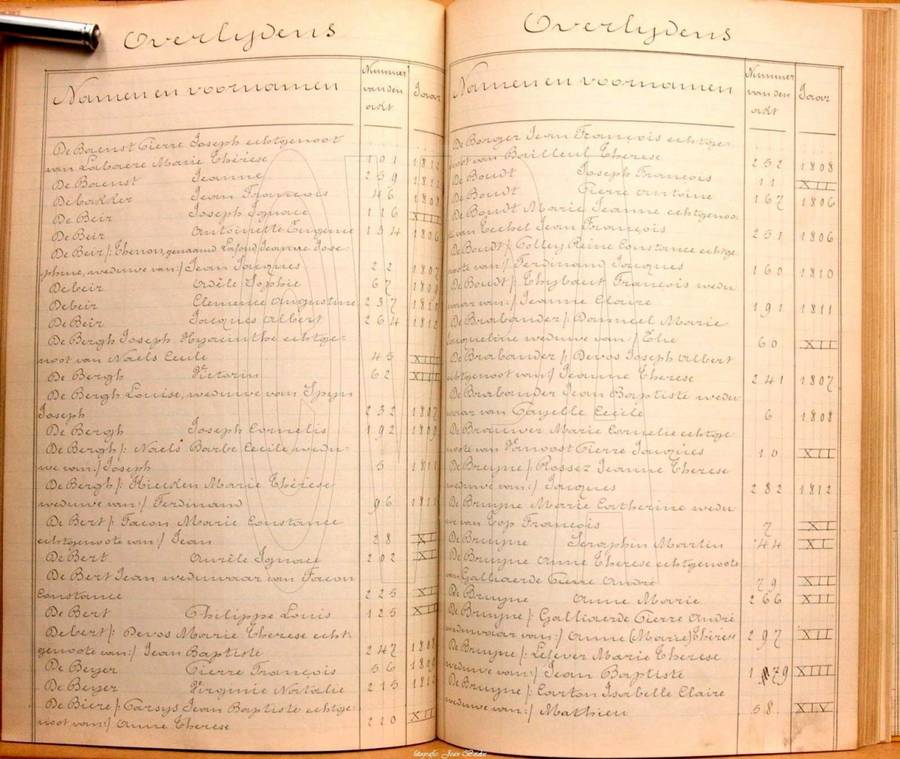 Overlydens
Namen en voornamen Nummer van den akt Jaar
De Baenst Pierre Joseph echtgenoot
van Labaere Marie Thérèse 101
De Baenst Jeanne 259
De Bakker Jean François 46
De Beir Joseph Ignace 116 XIII
De Beir Antoinette Eugenie 194 1806
De Beir /: Thenon, genaamd Lafond, Jeanne Jose-
phine, weduwe van :/ Jean Jacques 22 1807
De beir Adèle Sophie 67
De beir Clemence Augustine 237
De Beir Jacques Albert 264 1812
De Bergh Joseph Hyacinthe echtge-
noot van Naels Cecile 45 XII
De Bergh Victorin 62 XIII
De Bergh Louise, weduwe van Spyn
Joseph 232 1807
De Bergh Joseph Cornelis 192
De Bergh /: Naels Barbe Cecile, wedu-
we van :/ Joseph 5 1811
De Bergh /: Hierden Marie Thérèse
weduwe van :/ Ferdinand 96 1811
De Bert /: Facon Marie Constance
echtgenoote van :/ Jean 28
De Bert Aurèle Ignace 202
De Bert Jean weduwaar van Facon
Constance 225
De Bert Philippe Louis 125
De bert /: Devos Marie Therese echt-
genoote van :/ Jean Baptiste 247
De Beyer Pierre François 56
De Beyer Virginie Natalie 215
De Biere /: Carsys Jean Baptiste echtge-
noot van :/ Anne Therese 220
Overlydens
Namen en voornamen Nummer van den akt Jaar
De Bonger Jean François echtge-
noot van Bailleul Therese 252 1808
De Boudt Joseph François 11 XII
De Boudt Pierre Antoine 167 1806
De Boudt Marie Jeanne echtgenoo-
te van Techel Jean François 251 1806
De Boudt /: Colley Reine Constance echtge-
noote van :/ Ferdinand Jacques 160 1810
De Boudt /: Thybaut François wedu-
waar van :/ Jeanne Claire 191 1811
De Brabander /: Danneel Marie
Jacqueline weduwe van :/ Elie 60 XII
De Brabander /: Devos Joseph Albert
echtgenoot van :/ Jeanne Therese 241 1807
De Brabander Jean Baptiste wedu-
waar van Gayelle Cecile 6 1808
De Brauwer Marie Cornelie echtge-
noote van Vanoost Pierre Jacques 10 XII
De Bruyne /: Rossez Jeanne Therese
weduwe van :/ Jacques 282 1812
De Bruyne Marie Catherine wedu-
we van Top François 7 XI
De Bruyne Seraphin Martin 44 XI
De Bruyne Anne Therese echtgenoote
van Galliaerde Pierre André 79 XII
De Bruyne Anne Marie 266 XII
De Bruyne /: Galliaerde Pierre André
weduwaar van :/ Anne (Marie) Thérèse 297 XII
De Bruyne /: Lefever Marie Therese
weduwe van :/ Jean Baptiste 179 XIII
De Bruyne /: Carton Isabelle Claire
weduwe van :/ Mathieu 58 XIV